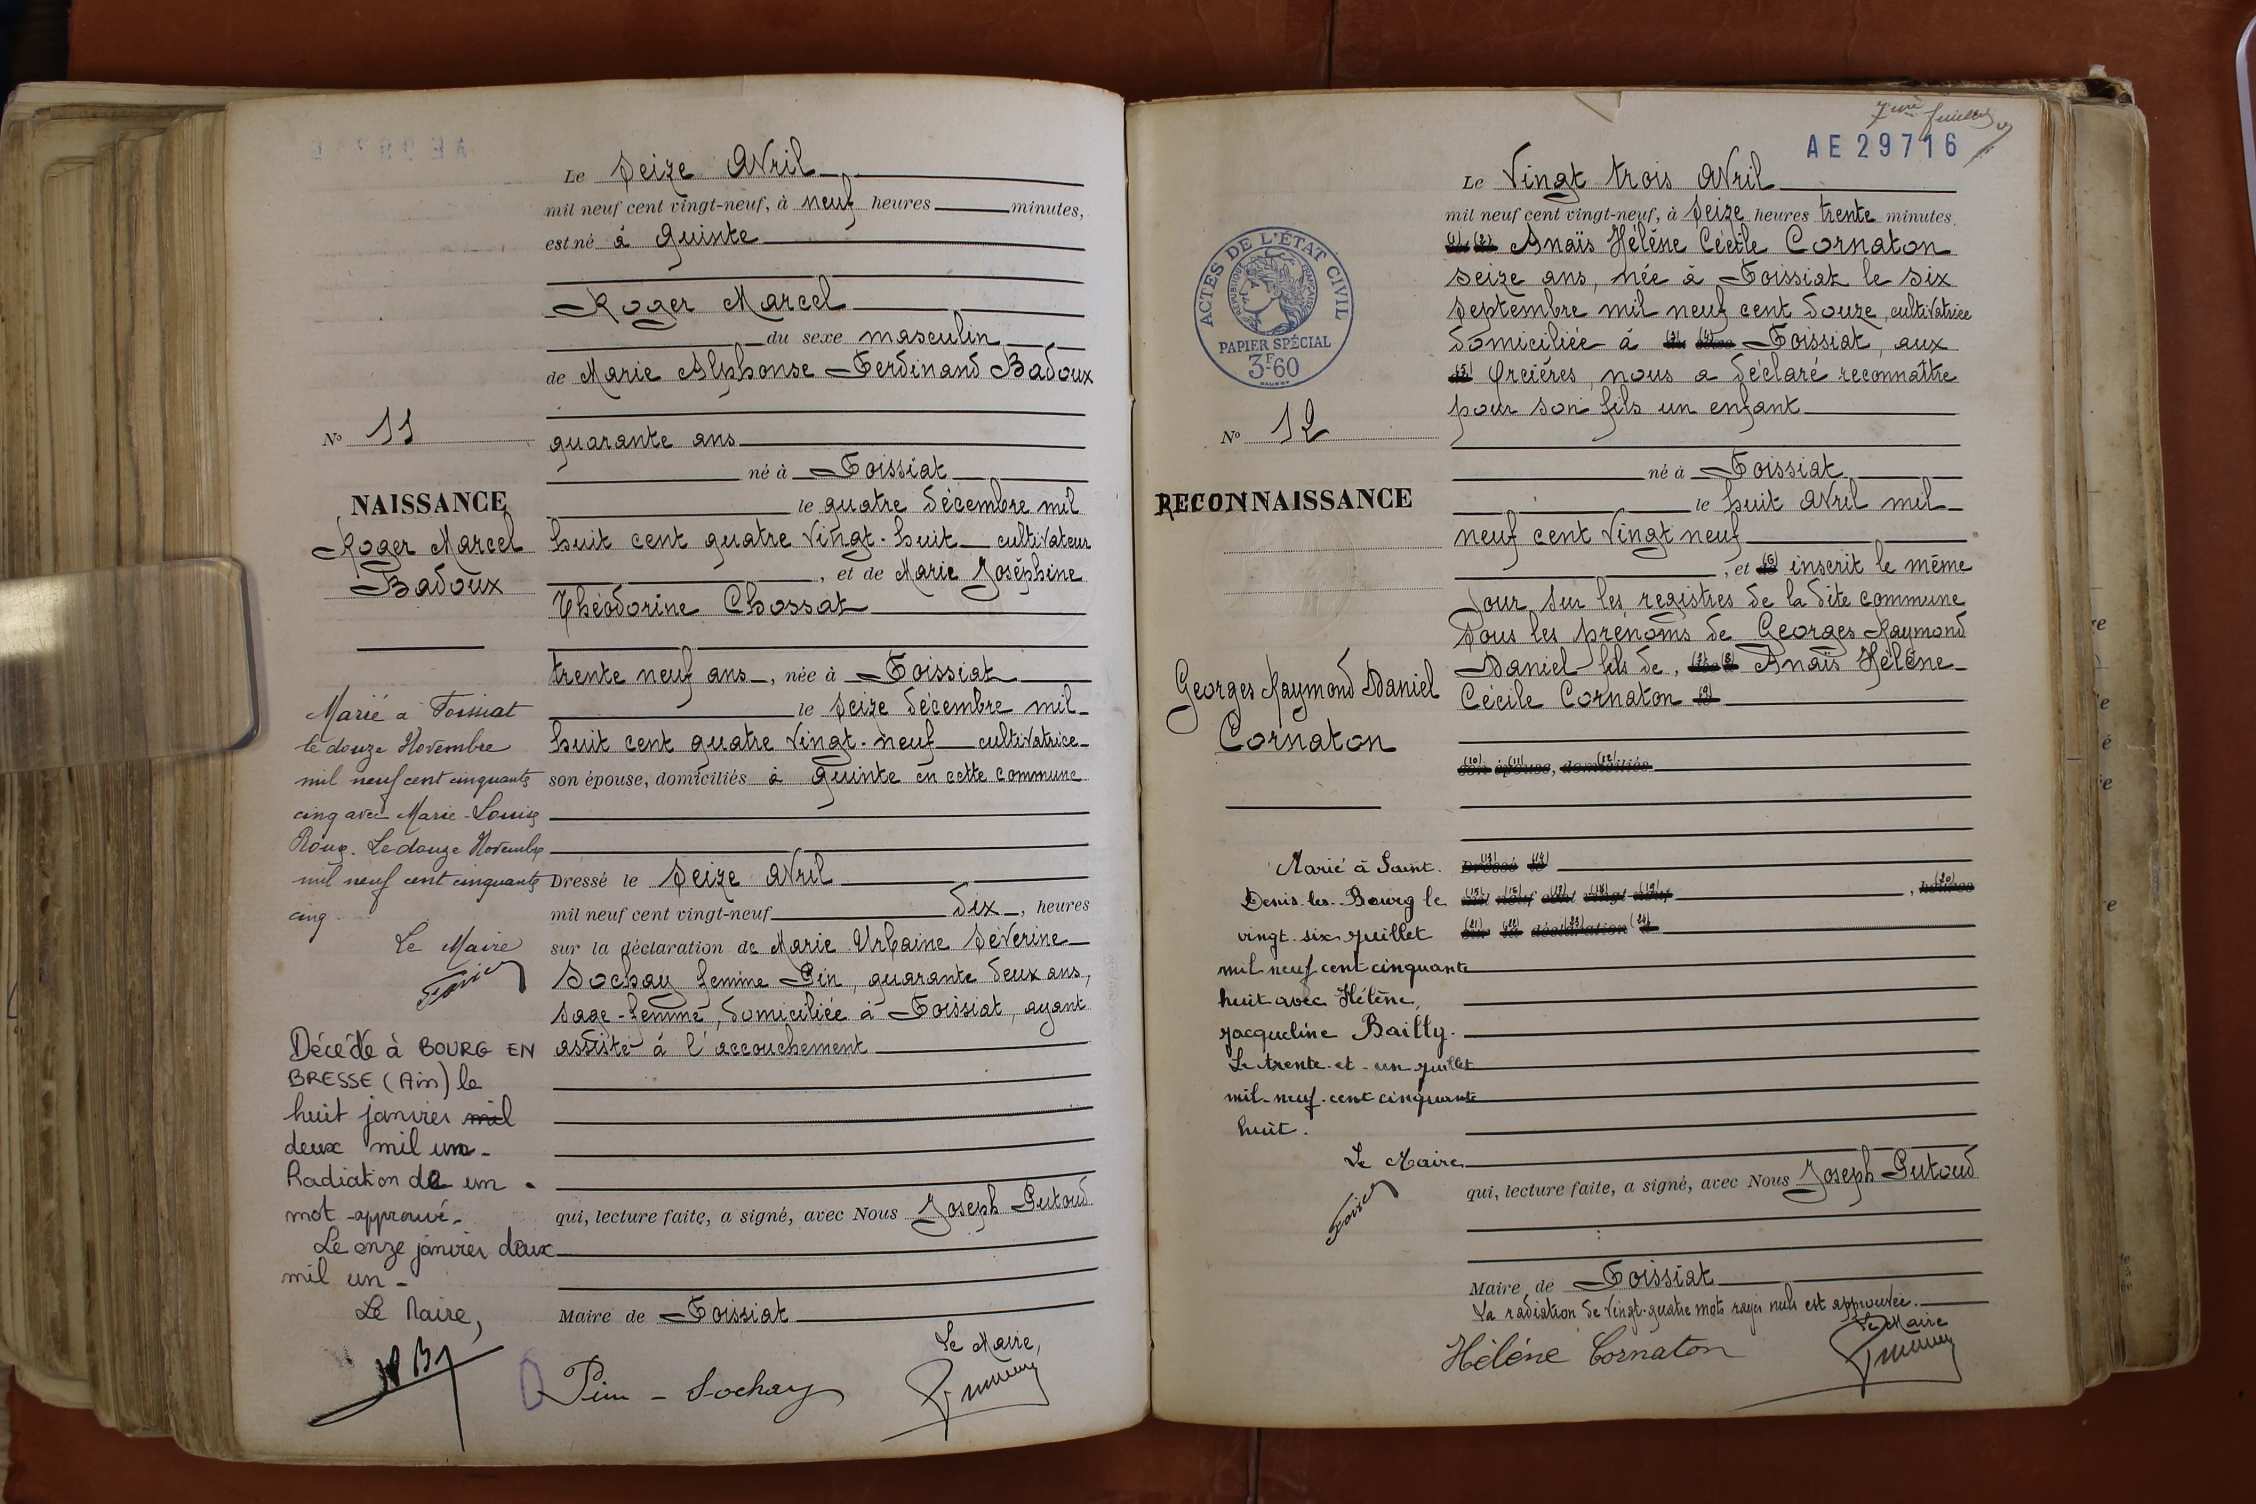 Le Seize Avril
mil neuf cent vingt-neuf, à neuf heures minutes,
est né à Quinte
Roger Marcel
du sexe masculin
de Marie Alphonse Ferdinand Badoux
N° 11
quarante ans
né à Foissiat
NAISSANCE
le quatre décembre mil
Roger Marcel
huit cent quatre vingt-huit cultivateur
Badoux
, et de Marie Joséphine
Théodorine Chossat
trente neuf ans, née à Foissiat
le seize décembre mil
huit cent quatre vingt-neuf cultivatrice
son épouse, domiciliés à Quinte en cette commune
Dressé le Seize Avril
mil neuf cent vingt-neuf dix, heures
sur la déclaration de Marie Urbaine Séverine
Sochay femme Pin, quarante deux ans,
sage-femme, domiciliée à Foissiat, ayant
assisté à l'accouchement
qui, lecture faite, a signé, avec Nous Joseph Putoud
Maire de Foissiat
Le Maire,
Pin - Sochay
Marié à Foissiat
le douze Novembre
mil neuf cent cinquante
cinq avec Marie-Louise
Roux. Le douze Novembre
mil neuf cent cinquante
cinq.
Le Maire
Décédé à BOURG EN
BRESSE (Ain) le
huit janvier mil
deux mil un-
Radiation de un
mot approuvé-
Le onze janvier deux
mil un-
Le Maire,
7ème feuillet
AE 29716
Le Vingt trois Avril
mil neuf cent vingt-neuf, à Seize heures trente minutes
(1) (2) Anaïs Hélène Cécile Cornaton
seize ans, née à Foissiat le six
septembre mil neuf cent douze, cultivatrice
domiciliée à (3) (4) Foissiat, aux
(5) Orcières, nous a déclaré reconnaître
pour son fils un enfant
ACTES DE L'ÉTAT CIVIL
RÉPUBLIQUE FRANÇAISE
PAPIER SPÉCIAL
3F60
N° 12
né à Foissiat
RECONNAISSANCE
le huit Avril mil
neuf cent vingt neuf
, et (6) inscrit le même
jour sur les registres de la dite commune
sous les prénoms de Georges Raymond
Daniel fils de, (7) (8) Anaïs Hélène
Cécile Cornaton (9)
Georges Raymond Daniel
Cornaton
son épouse, domiciliés
(10) (11) (12)
Dressé le
(13) (14)
mil neuf cent vingt-neuf, heures
(15) (16) (17) (18) (19) (20)
sur la déclaration de
(21) (22) (23) (24)
qui, lecture faite, a signé, avec Nous Joseph Putoud
Maire de Foissiat
La radiation de vingt-quatre mots rayés nuls est approuvée.
Le Maire
Hélène Cornaton
Marié à Saint-
Denis-les-Bourg le
vingt-six juillet
mil neuf cent cinquante
huit avec Hélène,
Jacqueline Bailly.
Le trente-et-un juillet
mil-neuf-cent cinquante
huit.
Le Maire